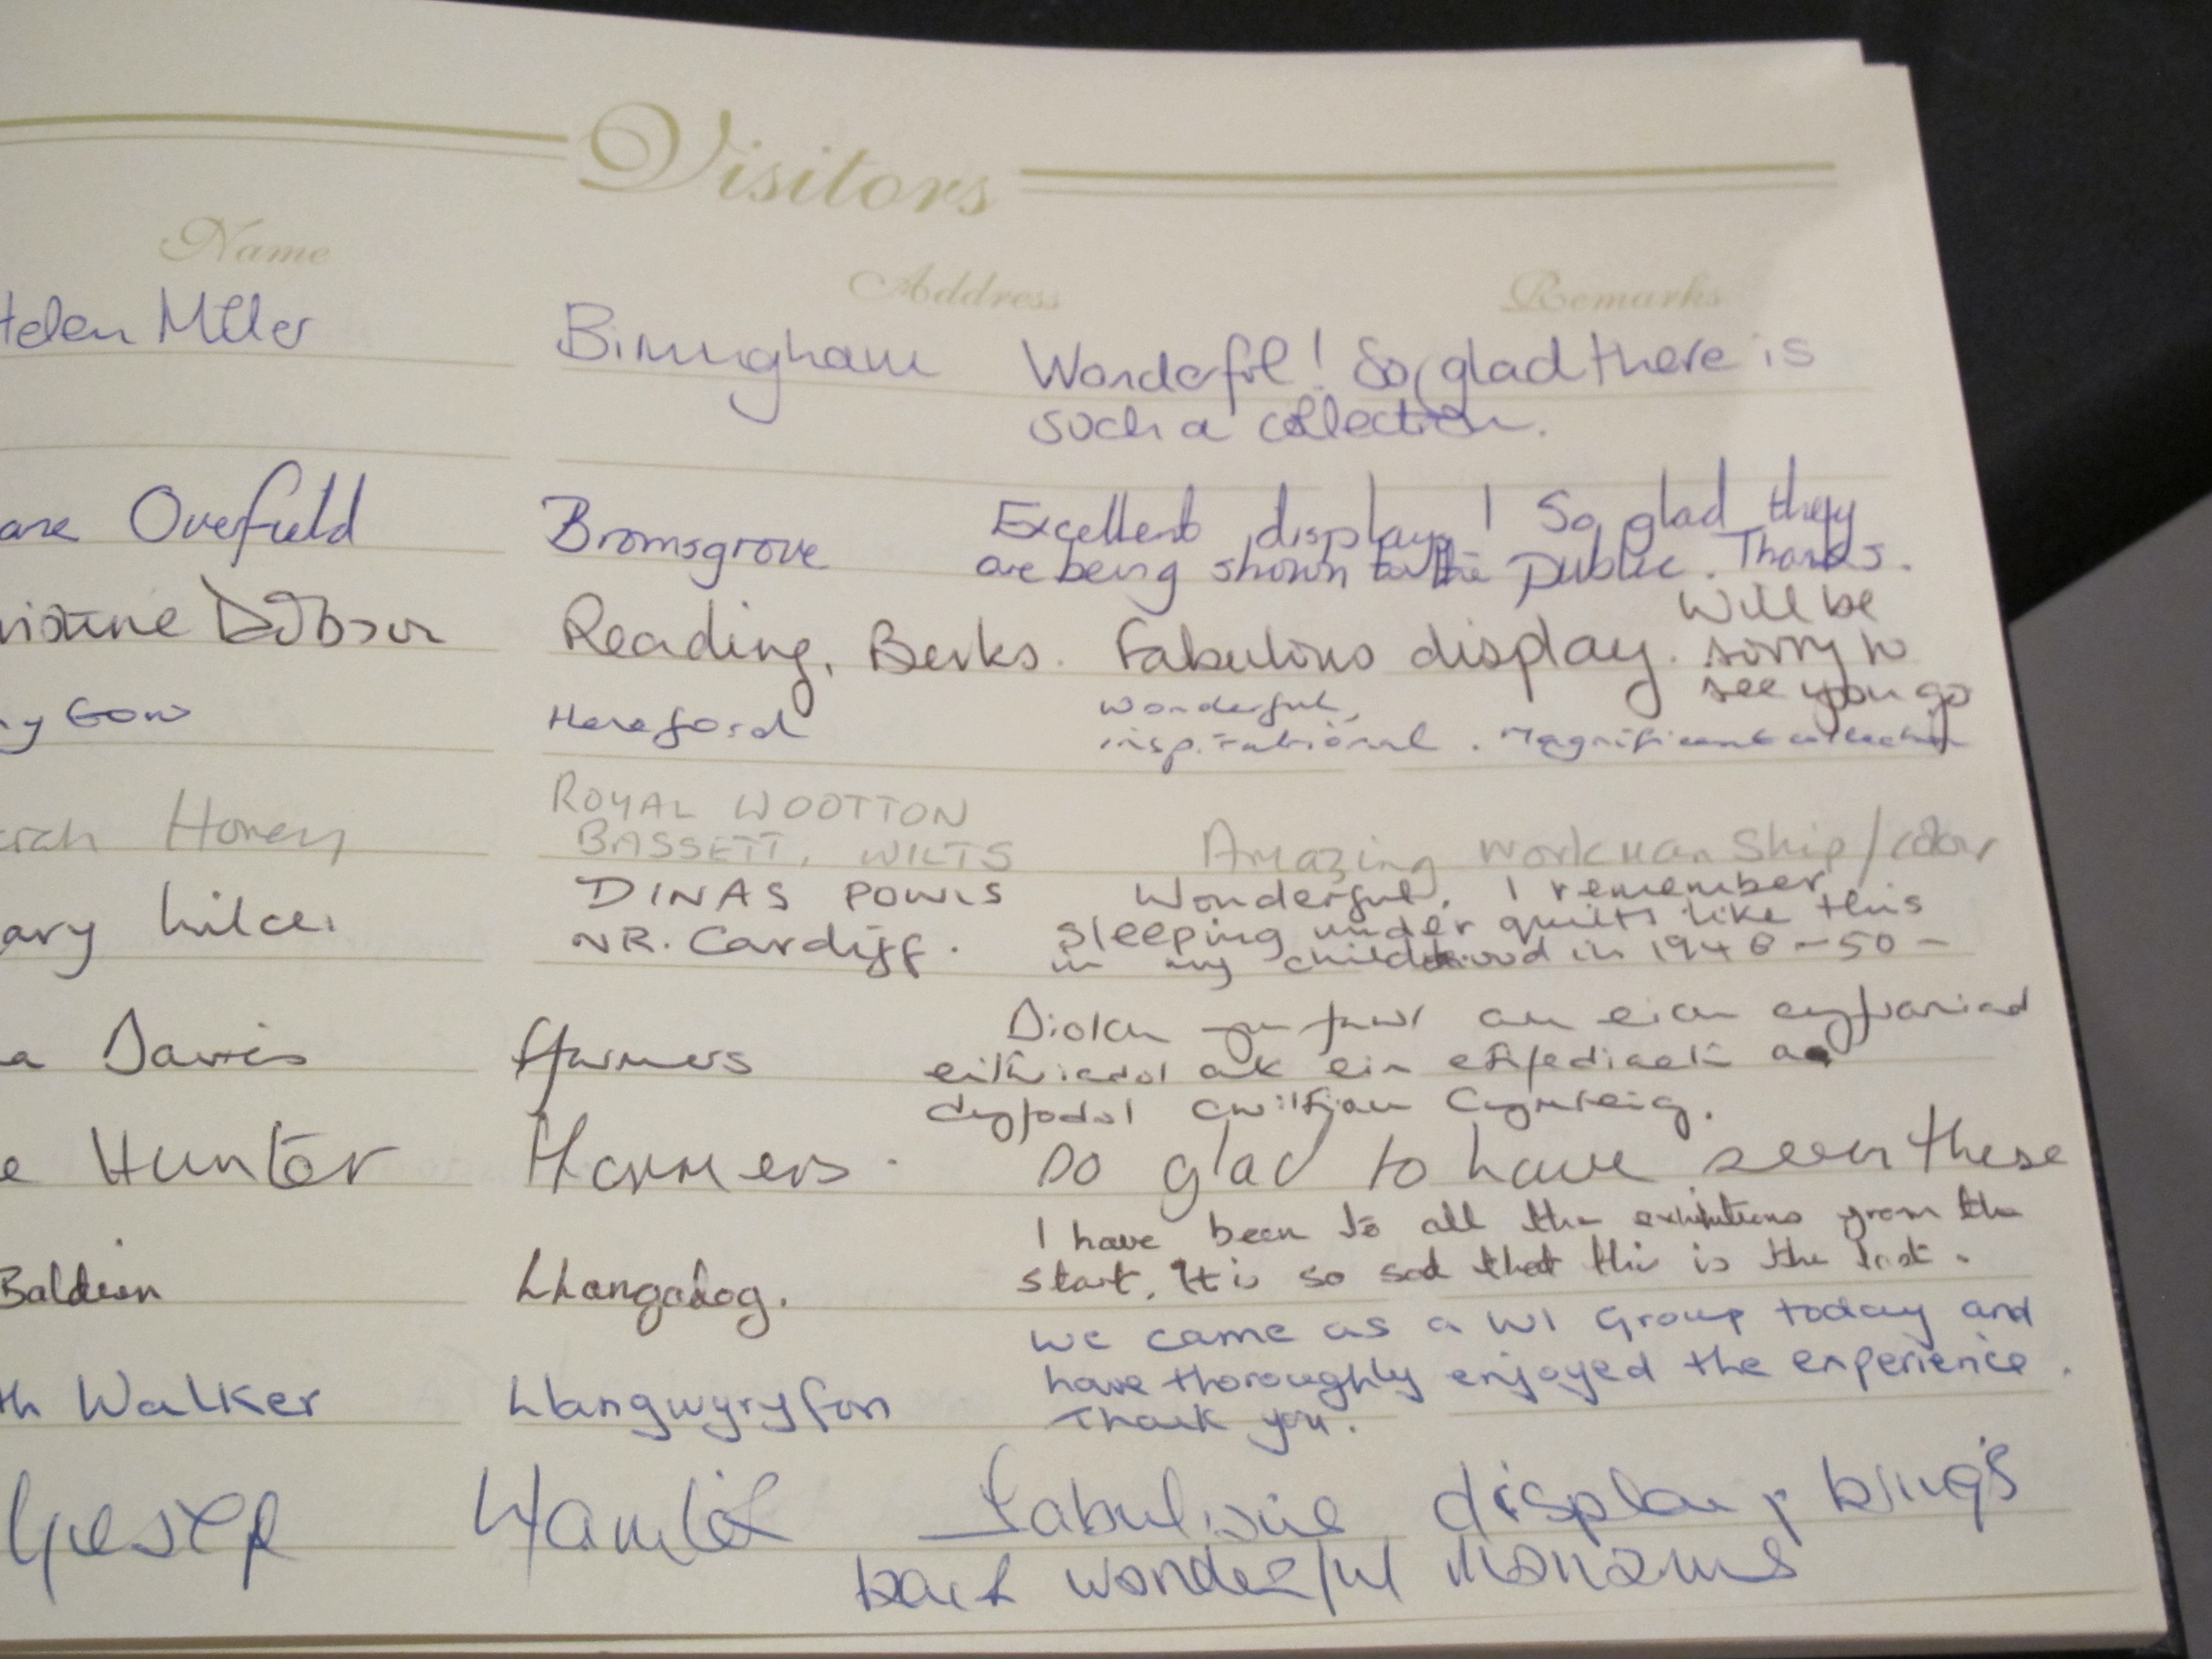 Visitors
Name Address Remarks
Helen Miller Birmingham Wonderful! So glad there is
such a collection.
Overfield Bromsgrove Excellent display! So glad they
are being shown to the public. Thanks.
Dobson Reading, Berks. Fabulous display. Will be
sorry to
see you go
Gow Hereford Wonderful,
inspirational. Magnificent collection
Honey ROYAL WOOTTON
BASSETT, WILTS Amazing workmanship/colour
DINAS POWIS Wonderful. I remember
NR. Cardiff. sleeping under quilts like this
in my childhood in 1948-50-
Davies Ffarmers Diolch yn fawr am eich cyfraniad
eithriadol
dyfodol cwiltiau Cymreig.
Hunter Harmers. So glad to have seen these
I have been to all the exhibitions from the
Llangadog. start. It is so sad that this is the last.
We came as a WI Group today and
Walker Llangwyryfon have thoroughly enjoyed the experience.
Thank you.
display, brings
back wonderful